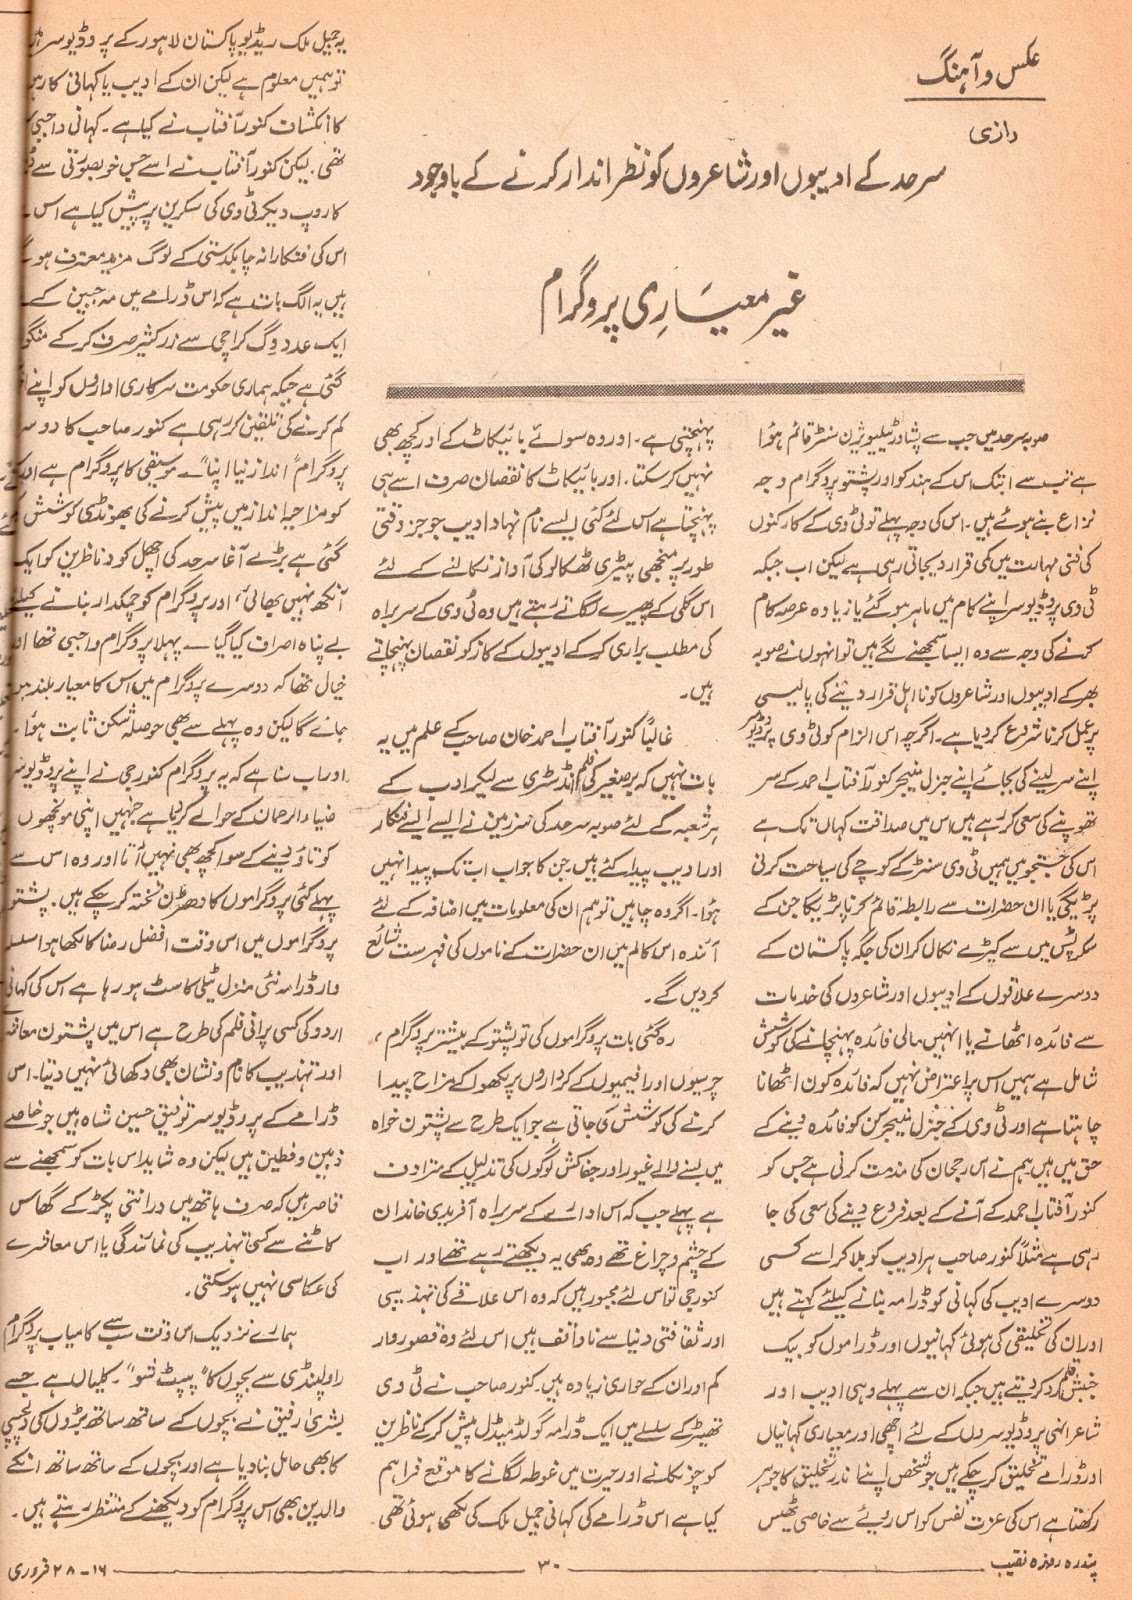 عکس و آہنگ
رازی
سرحد کے ادیبوں اور شاعروں کو نظر انداز کرنے کے باوجود
غیر معیاری پروگرام
صوبہ سرحد میں جب سے پشاور ٹیلیویژن سنٹر قائم ہوا
ہے تب سے ابتک اس کے ہندکو اور پشتو پروگرام وجہ
نزاع بنے ہوئے ہیں۔ اس کی وجہ پہلے تو ٹی وی کے کارکنوں
کی فنی مہارت میں کمی قرار دیجاتی رہی ہے لیکن اب جبکہ
ٹی وی پروڈیوسر اپنے کام میں ماہر ہو گئے یا زیادہ عرصہ کام
کرنے کی وجہ سے وہ ایسا سمجھنے لگے ہیں تو انہوں نے صوبہ
بھر کے ادیبوں اور شاعروں کو نااہل قرار دینے کی پالیسی
پر عمل کرنا شروع کردیا ہے۔ اگرچہ اس الزام کو ٹی وی پروڈیوسر
اپنے سر لینے کی بجائے اپنے جنرل منیجر کنور آفتاب احمد کے سر
تھوپنے کی سعی کر رہے ہیں اس میں صداقت کہاں تک ہے
اس کی جستجو میں ہمیں ٹی وی سنٹر کے کوچے کی سیاحت کرنی
پڑیگی یا ان حضرات سے رابطہ قائم کرنا پڑیگا جن کے
سکرپٹس میں سے کیڑے نکال کر ان کی جگہ پاکستان کے
دوسرے علاقوں کے ادیبوں اور شاعروں کی خدمات
سے فائدہ اٹھانے یا انہیں مالی فائدہ پہنچانے کی کوشش
شامل ہے ہمیں اس پر اعتراض نہیں کہ فائدہ کون اٹھانا
چاہتا ہے اور ٹی وی کے جنرل منیجر کن کو فائدہ دینے کے
حق میں ہیں ہم نے اس رجحان کی مذمت کرنی ہے جس کو
کنور آفتاب احمد کے آنے کے بعد فروغ دینے کی سعی کی جا
رہی ہے مثلاً کنور صاحب ہر ادیب کو بلا کر اسے کسی
دوسرے ادیب کی کہانی کو ڈرامہ بنانے کیلئے کہتے ہیں
اور ان کی تخلیق کی ہوئی کہانیوں اور ڈراموں کو بیک
جنبش قلم رد کر دیتے ہیں جبکہ ان سے پہلے وہی ادیب اور
شاعر انہی پروڈیوسروں کے لئے اچھی اور معیاری کہانیاں
اور ڈرامے تخلیق کر چکے ہیں جو شخص اپنے اندر تخلیق کا جوہر
رکھتا ہے اس کی عزت نفس کو اس رویے سے خاصی ٹھیس
پہنچتی ہے۔ اور وہ سوائے بائیکاٹ کے اور کچھ بھی
نہیں کرسکتا۔ اور بائیکاٹ کا نقصان صرف اسے ہی
پہنچتا ہے اس لئے کئی ایسے نام نہاد ادیب جو جز وقتی
طور پر منجھی پیڑی ٹھکا لو کی آواز نکالنے کے لئے
اس گلی کے پھیرے لگاتے رہتے ہیں وہ ٹی وی کے سربراہ
کی مطلب براری کرکے ادیبوں کے کاز کو نقصان پہنچاتے
ہیں۔
غالباً کنور آفتاب احمد خان صاحب کے علم میں یہ
بات نہیں کہ برصغیر کی فلم انڈسٹری سے لیکر ادب کے
ہر شعبہ کے لئے صوبہ سرحد کی سرزمین نے ایسے ایسے فنکار
اور ادیب پیدا کئے ہیں جن کا جواب اب تک پیدا نہیں
ہوا۔ اگر وہ چاہیں تو ہم ان کی معلومات میں اضافہ کے لئے
آئندہ اس کالم میں ان حضرات کے ناموں کی فہرست شائع
کردیں گے۔
رہ گئی بات پروگراموں کی تو پشتو کے بیشتر پروگرام،
چرسیوں اور افیمیوں کے کرداروں پر لکھوا کے مزاح پیدا
کرنے کی کوشش کی جاتی ہے جو ایک طرح سے پشتون خواہ
میں بسنے والے غیور اور جفاکش لوگوں کی تذلیل کے مترادف
ہے پہلے جب کہ اس ادارے کے سربراہ آفریدی خاندان
کے چشم و چراغ تھے وہ بھی یہ دیکھتے رہے تھے اور اب
کنور جی تو اس لئے مجبور ہیں کہ وہ اس علاقے کی تہذیبی
اور ثقافتی دنیا سے ناواقف ہیں اس لئے وہ قصوروار
کم اور ان کے حواری زیادہ ہیں۔ کنور صاحب نے ٹی وی
تھیٹر کے سلسلے میں ایک ڈرامہ گولڈ میڈل پیش کرکے ناظرین
کو چونکانے اور حیرت میں غوطہ لگانے کا موقع فراہم
کیا ہے اس ڈرامے کی کہانی جمیل ملک کی لکھی ہوئی تھی
یہ جمیل ملک ریڈیو پاکستان لاہور کے پروڈیوسر
تو ہمیں معلوم ہے لیکن ان کے ادیب یا کہانی کار
کا انکشاف کنور آفتاب نے کیا ہے۔ کہانی واجبی
تھی۔ لیکن کنور آفتاب نے اسے جس خوبصورتی سے
کا روپ دیکر ٹی وی کی سکرین پر پیش کیا ہے اس
اس کی فنکارانہ چابکدستی کے لوگ مزید معترف ہو
ہیں یہ الگ بات ہے کہ اس ڈرامے میں مہ جبین کے
ایک عدد وگ کراچی سے زر کثیر صرف کرکے
گئی ہے جبکہ ہماری حکومت سرکاری اداروں کو اپنے
کم کرنے کی تلقین کر رہی ہے کنور صاحب کا دوسرا
پروگرام "انداز نیا اپنا"۔ موسیقی کا پروگرام ہے
کو مزاحیہ انداز میں پیش کرنے کی بھونڈی کوشش
گئی ہے بڑے آغا سرحد کی اچھل کود ناظرین کو ایک
آنکھ نہیں بھائی، اور پروگرام کو چمکدار بنانے کیلئے
بے پناہ اصراف کیا گیا۔ پہلا پروگرام واجبی تھا
خیال تھا کہ دوسرے پروگرام میں اس کا معیار بلند ہو
جائے گا لیکن وہ پہلے سے بھی حوصلہ شکن ثابت ہوا۔
اور اب سنا ہے کہ یہ پروگرام کنور جی نے اپنے پروڈیوسر
ضیاء الرحمان کے حوالے کردیا ہے جنہیں اپنی مونچھوں
کو تاؤ دینے کے سوا کچھ بھی نہیں آتا اور وہ اس سے
پہلے کئی پروگراموں کا دھڑن تختہ کر چکے ہیں۔ پشتو
پروگراموں میں اس وقت افضل رضا کا لکھا ہوا سلسلہ
وار ڈرامہ نئی منزل ٹیلی کاسٹ ہو رہا ہے اس کی کہانی
اردو کی کسی پرانی فلم کی طرح ہے اس میں پشتون معاشرہ
اور تہذیب کا نام و نشان بھی دکھائی نہیں دیتا۔ اس
ڈرامے کے پروڈیوسر توفیق حسین شاہ ہیں جو خاصے
ذہین و فطین ہیں لیکن وہ شاید اس بات کو سمجھنے سے
قاصر ہیں کہ صرف ہاتھ میں درانتی پکڑ کے گھاس
کاٹنے سے کسی تہذیب کی نمائندگی یا اس معاشرے
کی عکاسی نہیں ہوسکتی۔
ہمارے نزدیک اس وقت سب سے کامیاب پروگرام
راولپنڈی سے بچوں کا "پپٹ شو"۔ کلیاں ہے جسے
بشریٰ رفیق نے بچوں کے ساتھ ساتھ بڑوں کی دلچسپی
کا بھی حامل بنا دیا ہے اور بچوں کے ساتھ ساتھ انکے
والدین بھی اس پروگرام کو دیکھنے کے منتظر رہتے ہیں۔
پندرہ روزہ نقیب
۳۰
۱۶-۲۸ فروری